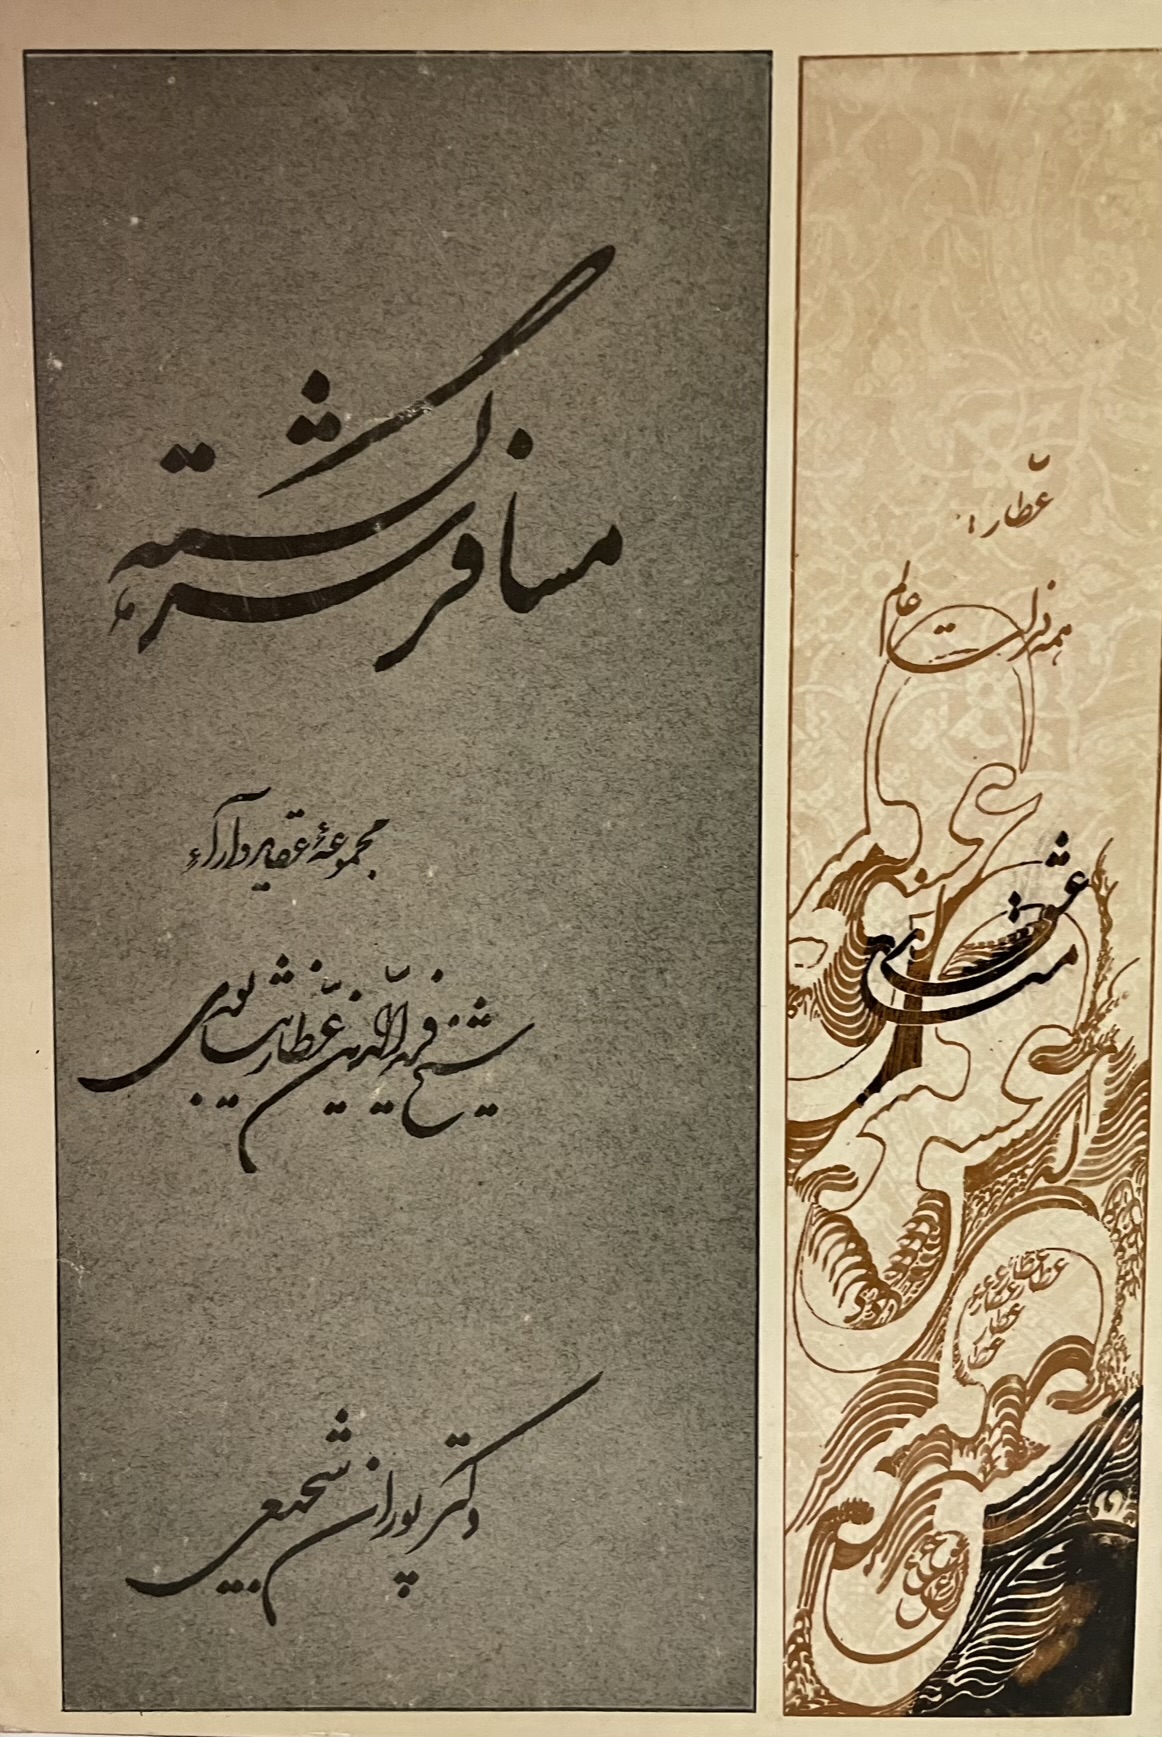 مسافر سرگشته
مجموعهٔ عقاید و آراء
شیخ فریدالدّین عطّار نیشابوری
دکتر پوران شجیعی
عطّار:
همه ذرات عالم
مست عشقند
عطار عطار عطار
عطار
عطار